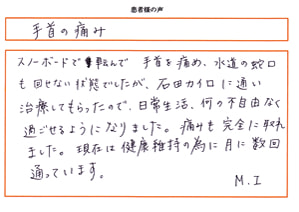 患者様の声
手首の痛み
スノーボードで転んで 手首を痛め、水道の蛇口
も回せない状態でしたが、石田カイロに通い
治療してもらったので、日常生活、何の不自由なく
過ごせるようになりました。痛みも完全に取れ
ました。現在は健康維持の為に月に数回
通っています。
M.I